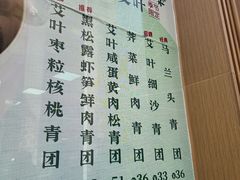 马兰头青团
艾叶细沙青团
荠菜鲜肉青团
艾叶咸蛋黄肉松青团
黑松露虾笋鲜肉青团
艾叶枣粒核桃青团
推荐
51 ¢36 ¢33 ¢36